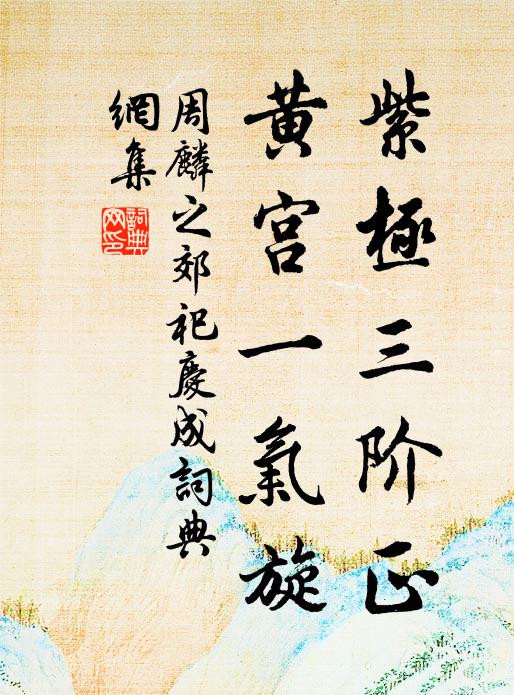 紫極三阶正
黄宫一氣旋
周麟之郊祀慶成詞典
網集
詞典網印